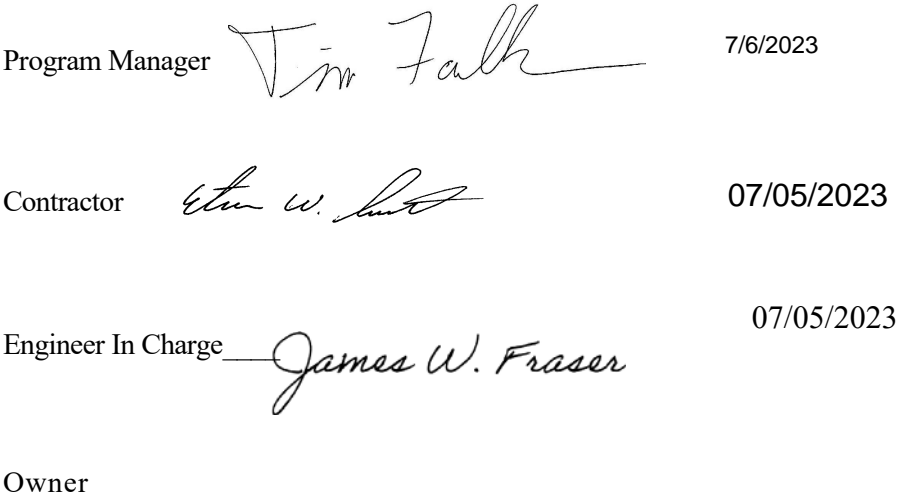 Program Manager Tim Falk 7/6/2023
Contractor W. 07/05/2023
Engineer In Charge James W. Fraser 07/05/2023
Owner